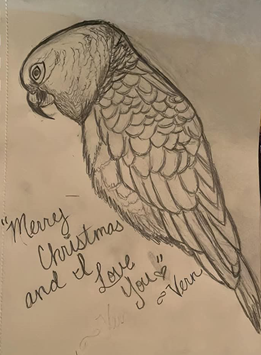 "Merry
Christmas
and I Love
You"
~Vern